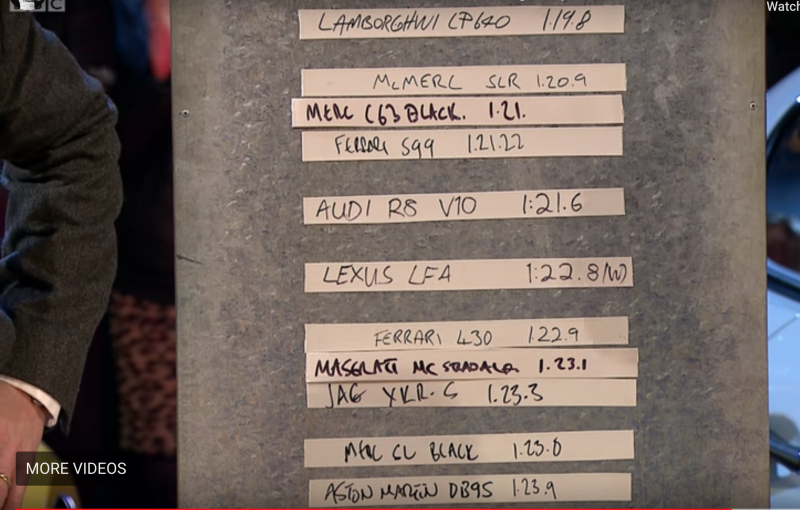 BBC
Watch
LAMBORGHINI LP640 1.19.8
McMERC SLR 1.20.9
MERC C63 BLACK. 1.21.
FERRARI 599 1.21.22
AUDI R8 V10 1:21.6
LEXUS LFA 1:22.8(W)
FERRARI 430 1.22.9
MASERATI MC STRADALE 1.23.1
JAG XKR-S 1.23.3
MERC CL BLACK 1.23.0
ASTON MARTIN DB9S 1.23.9
MORE VIDEOS